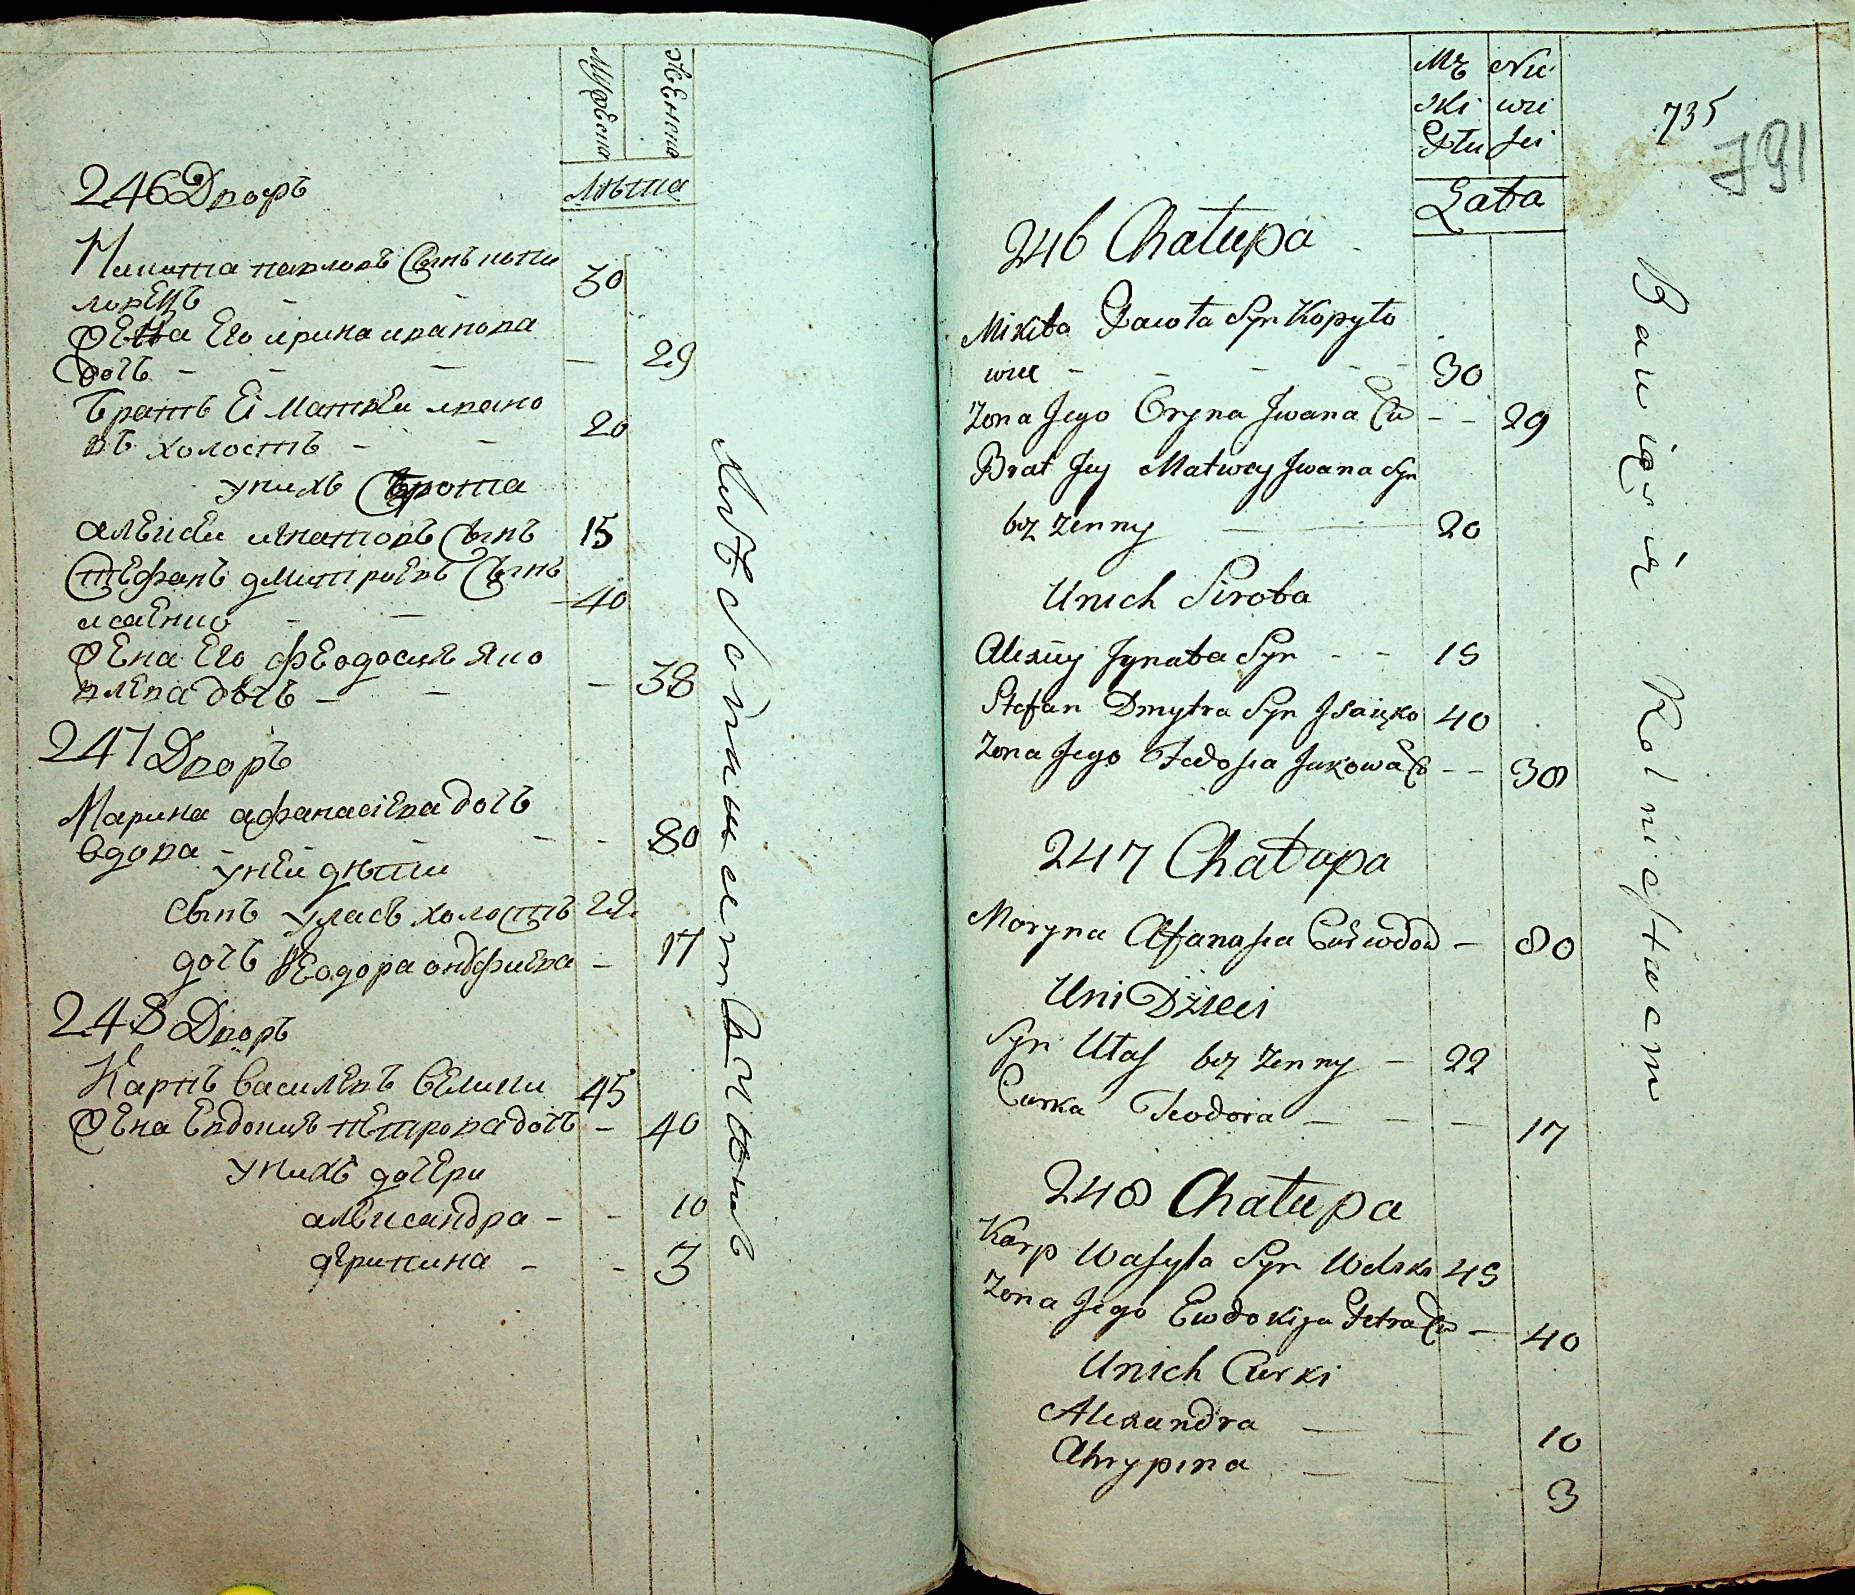 Мужеска
Женска
Лѣта
246 Дворъ
Микита павловъ Сынъ копи
ловецъ
30
жена Его ирина иванова
дочь
29
братъ Еі Матвѣи ивано
въ холостъ
20
у нихъ Сирота
алѣксѣи игнатовъ Сынъ 15
Стефанъ дмитриевъ Сынъ
исаенко 40
жена Его феодосия яко
влева дочь 38
247 Дворъ
Марина афанасіева дочь
вдова 80
у нѣи дѣти
сынъ уласъ холостъ 22
дочь феодора онофриева 17
248 Дворъ
Карпъ василевъ 45
жена Евдокия петрова дочь 40
у нихъ дочери
алѣксандра 10
агрипина 3
Mę Nie
ski wie
Płu sci
Lata
735
791
246 Chałupa
Mikita Pawła Syn Kopyto
wiec 30
Żona Jego Oryna Jwana Cu 29
Brat Jey Matwey Jwana Syn
bez zenny 20
Unich Sirota
Alexiey Jgnata Syn 15
Stefan Dmytra Syn Jsaięko 40
Żona Jego Fedosia Jakowa Co 38
247 Chałupa
Moryna Afanasia Cur wdow 80
Uni Dzieci
Syn Ułas bez zenny 22
Curka Feodora 17
248 Chałupa
Karp Wasyla Syn 45
Żona Jego Ewdokija Petra Cu 40
Unich Curki
Alexandra 10
Ahrypina 3
Bawiący Rolnictwem